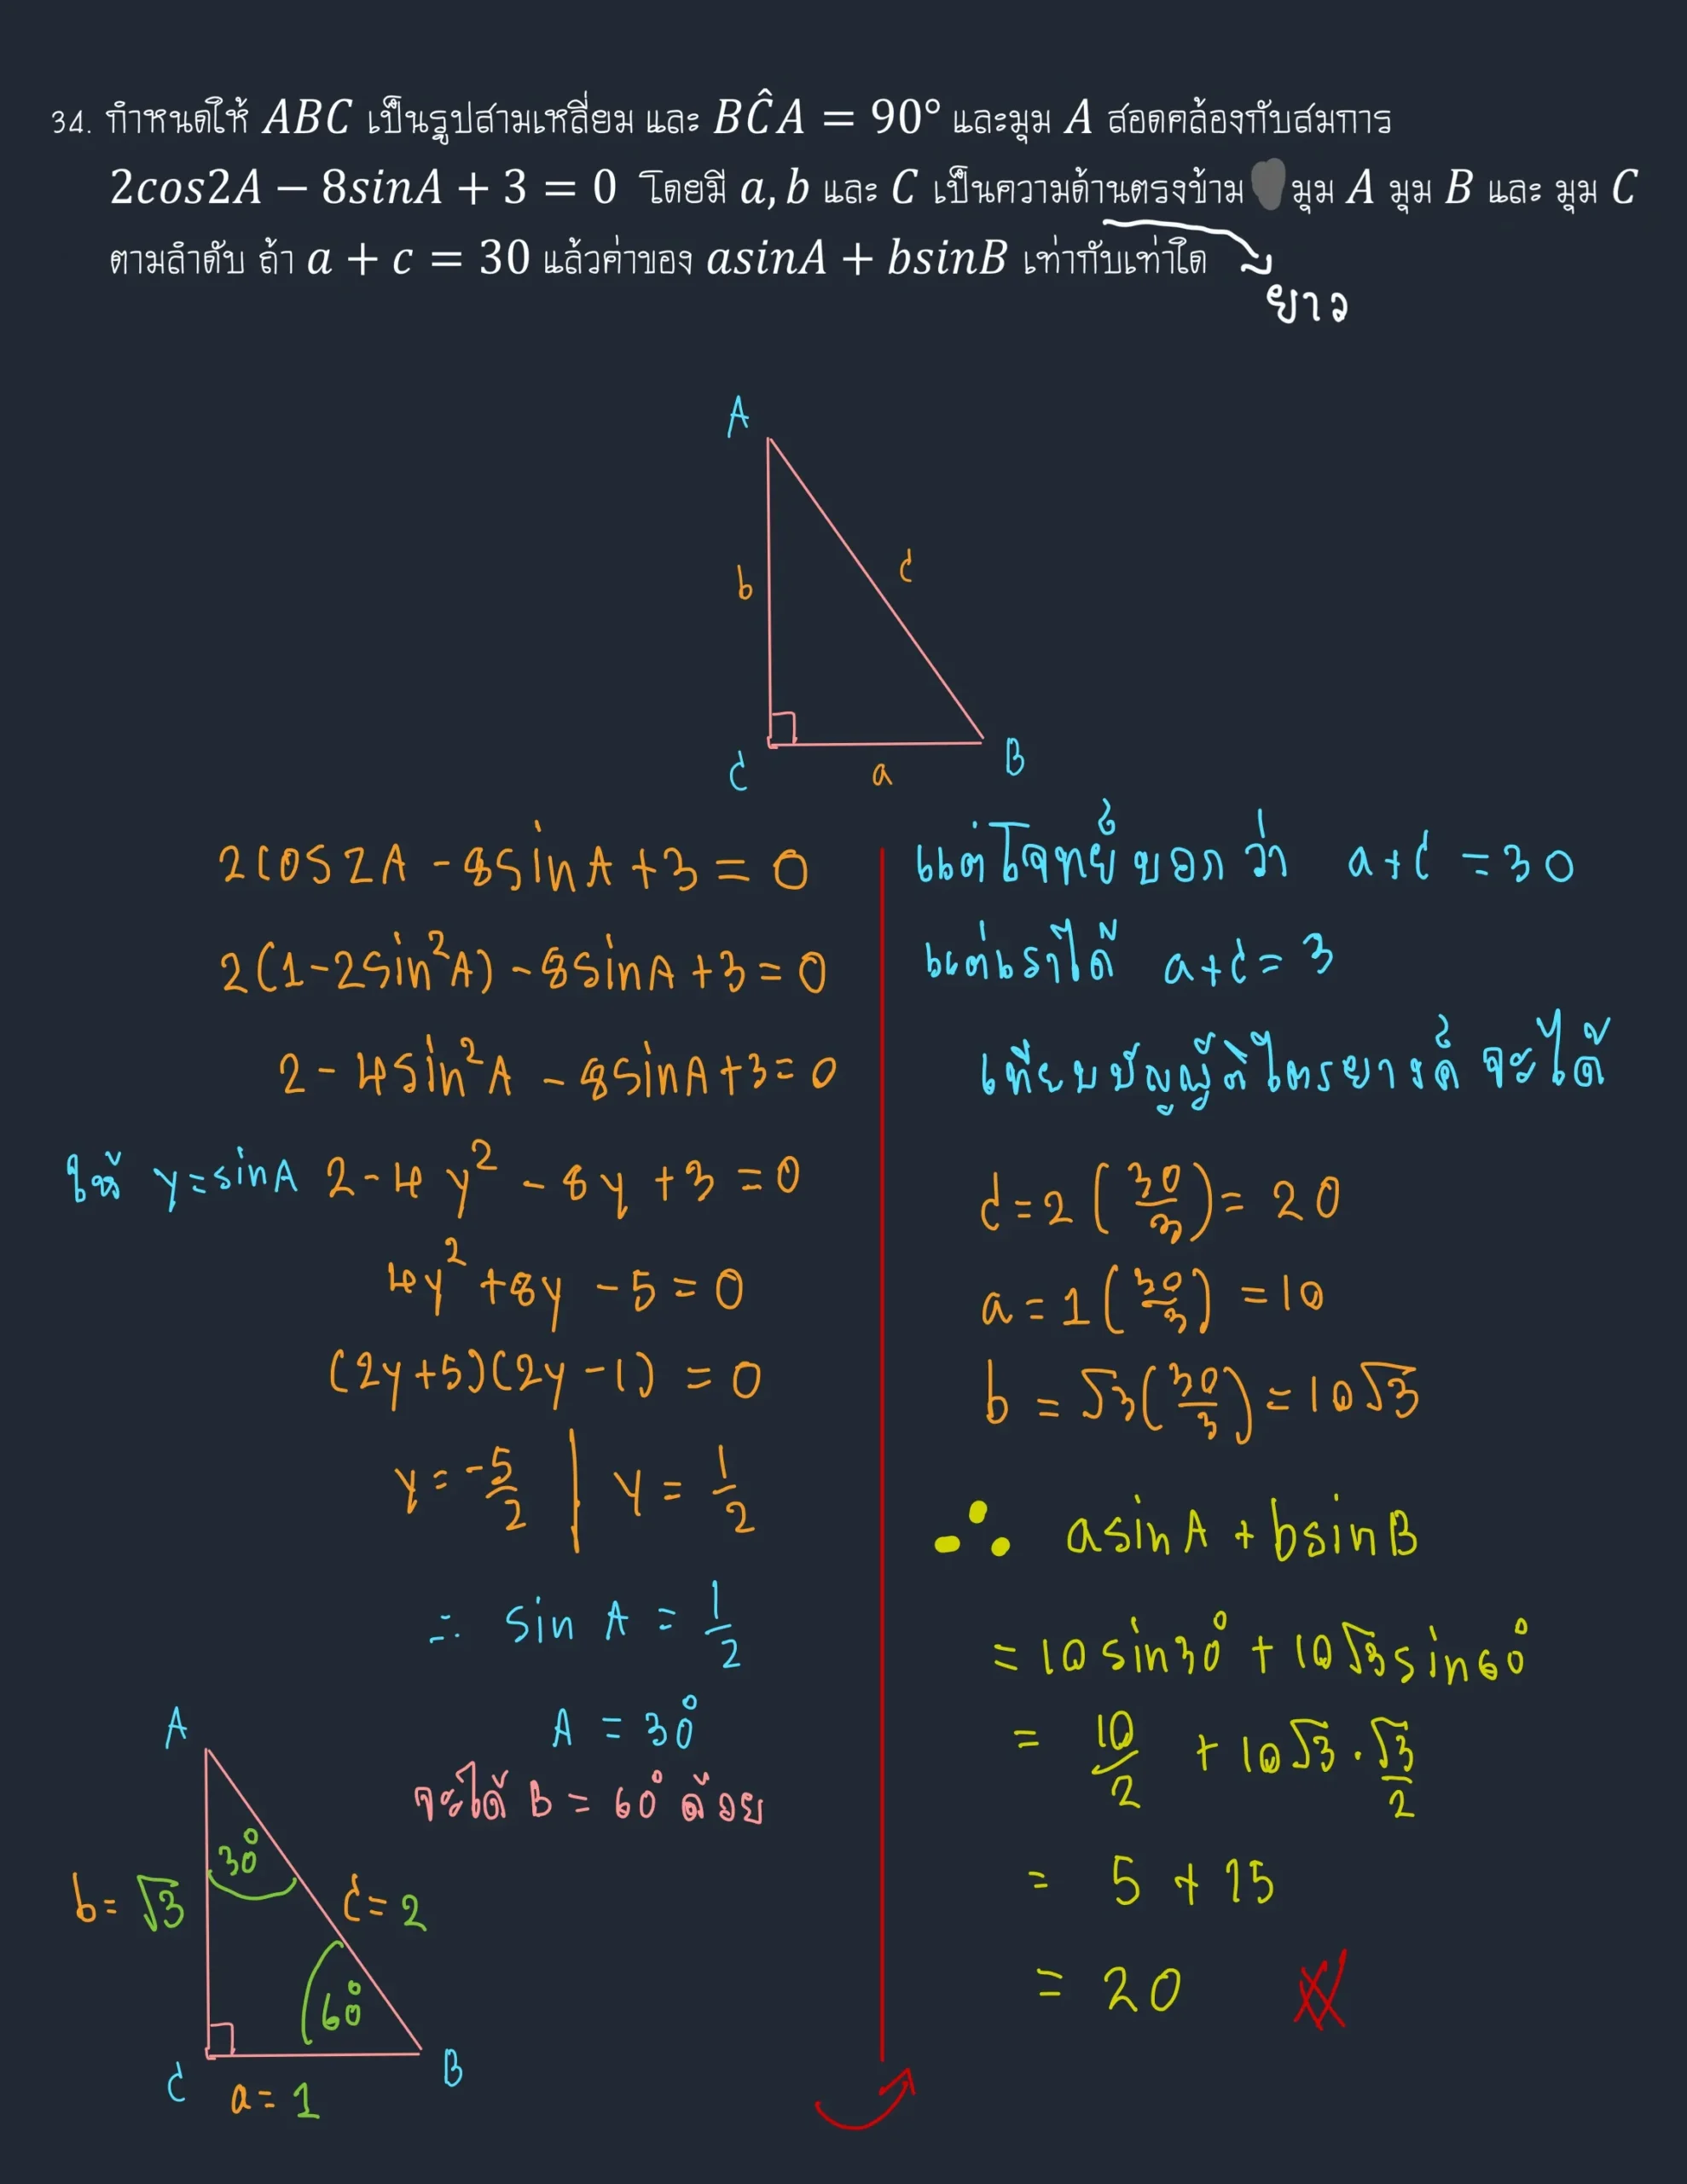 34. กำหนดให้ ABC เป็นรูปสามเหลี่ยม และ BĈA = 90° และมุม A สอดคล้องกับสมการ
2cos2A − 8sinA + 3 = 0 โดยมี a, b และ C เป็นความด้านตรงข้าม มุม A มุม B และ มุม C
ตามลำดับ ถ้า a + c = 30 แล้วค่าของ asinA + bsinB เท่ากับเท่าใด
ยาว
A
b
c
C
a
B
2cos2A - 8sinA + 3 = 0
2(1-2sin²A) - 8sinA + 3 = 0
2 - 4sin²A - 8sinA + 3 = 0
ให้ y = sinA 2 - 4y² - 8y + 3 = 0
4y² + 8y - 5 = 0
(2y+5)(2y-1) = 0
y = -5/2 | y = 1/2
∴ sin A = 1/2
A = 30°
จะได้ B = 60° ด้วย
A
30°
b = √3
c = 2
60°
C
B
a = 1
แต่โจทย์บอกว่า a+c = 30
แต่เราได้ a+c = 3
เทียบบัญญัติไตรยางค์ จะได้
c = 2(30/3) = 20
a = 1(30/3) = 10
b = √3(30/3) = 10√3
∴ asinA + bsinB
= 10sin30° + 10√3sin60°
= 10/2 + 10√3·√3/2
= 5 + 15
= 20